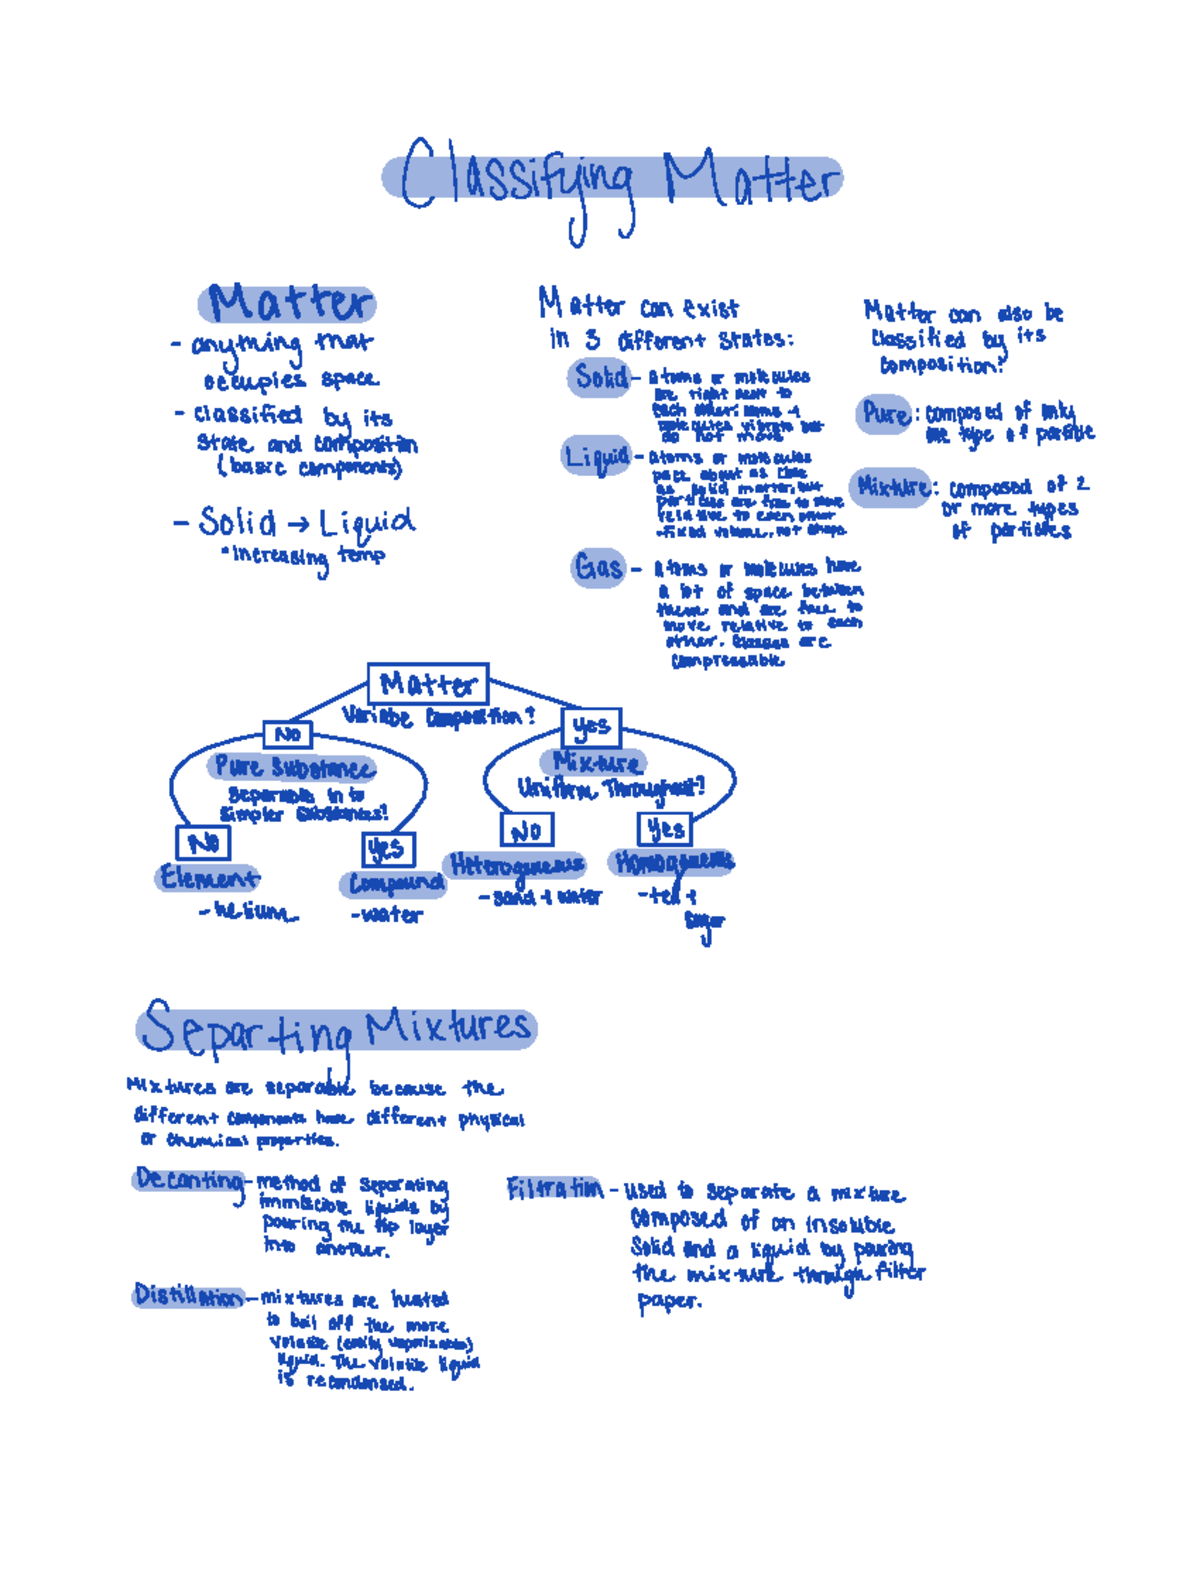 Classifying Matter
Matter
- anything that
occupies space
- classified by its
state and composition
(basic components)
- Solid → Liquid
*increasing temp
Matter can exist
in 3 different states:
Solid - atoms or molecules
are right next to
each other: atoms +
molecules vibrate but
do not move
Liquid - atoms or molecules
pack about as close
as solid matter, but
particles are free to move
relative to each other
-fixed volume, not shape
Gas - atoms or molecules have
a lot of space between
them and are free to
move relative to each
other. Gasses are
compressable
Matter can also be
classified by its
composition:
Pure: composed of only
one type of particle
Mixture: composed of 2
or more types
of particles
Matter
Variable Composition?
No
Yes
Pure Substance
Mixture
Separable in to
simpler substances?
Uniform Throughout?
No
Yes
No
Yes
Element
Compound
Heterogeneous
Homogeneous
- helium
-water
- sand + water
- tea +
sugar
Separting Mixtures
Mixtures are separable because the
different components have different physical
or chemical properties.
Decanting - method of separating
immiscible liquids by
pouring the top layer
into another.
Distillation - mixtures are heated
to boil off the more
volatile (easily vaporizable)
liquid. The volatile liquid
is recondensed.
Filtration - used to separate a mixture
composed of an insoluble
solid and a liquid by pouring
the mixture through filter
paper.